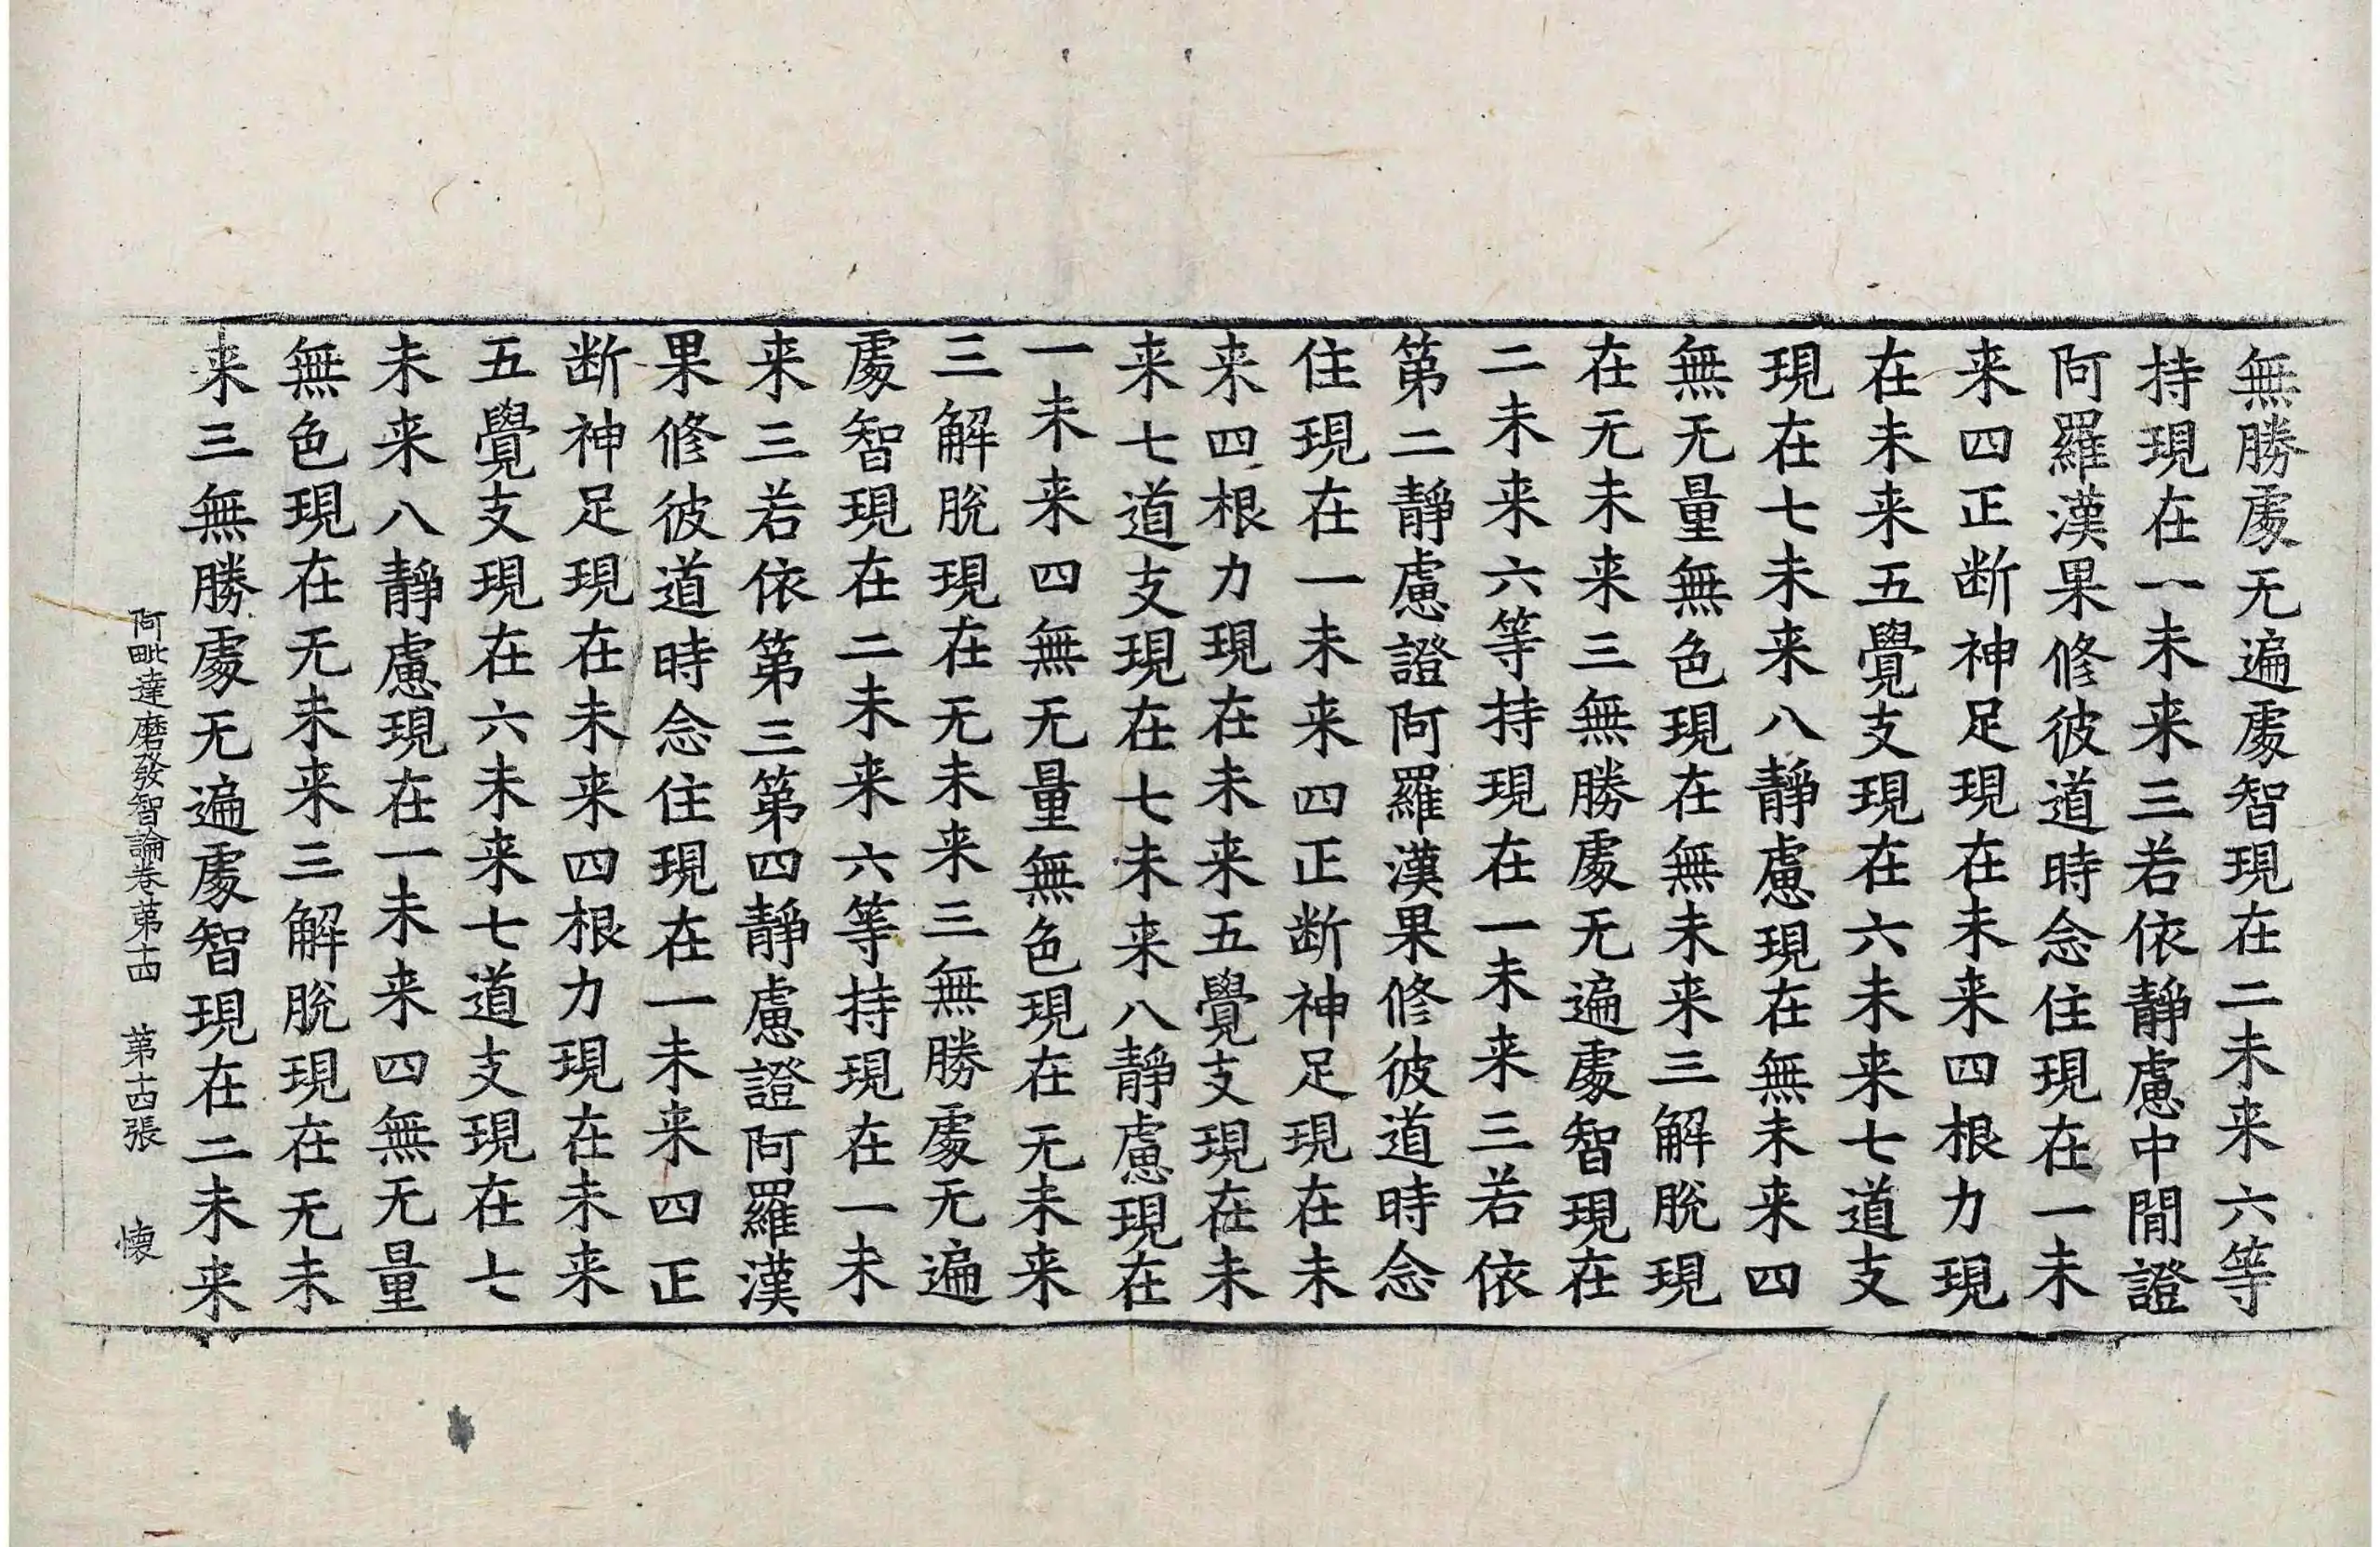 無勝處无遍處智現在二未来六等
持現在一未来三若依靜慮中閒證
阿羅漢果修彼道時念住現在一未
来四正断神足現在未来四根力現
在未来五覺支現在六未来七道支
現在七未来八靜慮現在無未来四
無无量無色現在無未来三解脫現
在无未来三無勝處无遍處智現在
二未来六等持現在一未来三若依
第二靜慮證阿羅漢果修彼道時念
住現在一未来四正断神足現在未
来四根力現在未来五覺支現在未
来七道支現在七未来八靜慮現在
一未来四無无量無色現在无未来
三解脫現在无未来三無勝處无遍
處智現在二未来六等持現在一未
来三若依第三第四靜慮證阿羅漢
果修彼道時念住現在一未来四正
断神足現在未来四根力現在未来
五覺支現在六未来七道支現在七
未来八靜慮現在一未来四無无量
無色現在无未来三解脫現在无未
来三無勝處无遍處智現在二未来
阿毗達磨發智論卷第十四 第十四張 懐